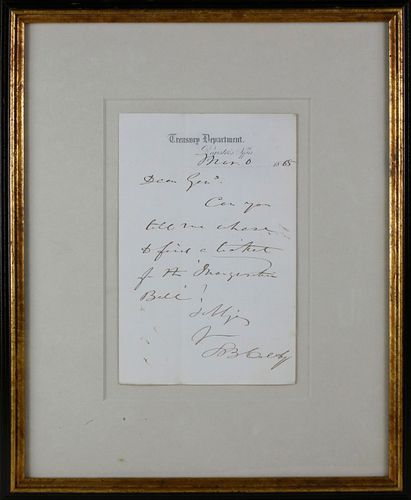 Treasury Department.
Register's Office
Mar. 6 1865
Dear Genl.
Can you
tell me where
to find a ticket
for the "Inauguration
Ball"?